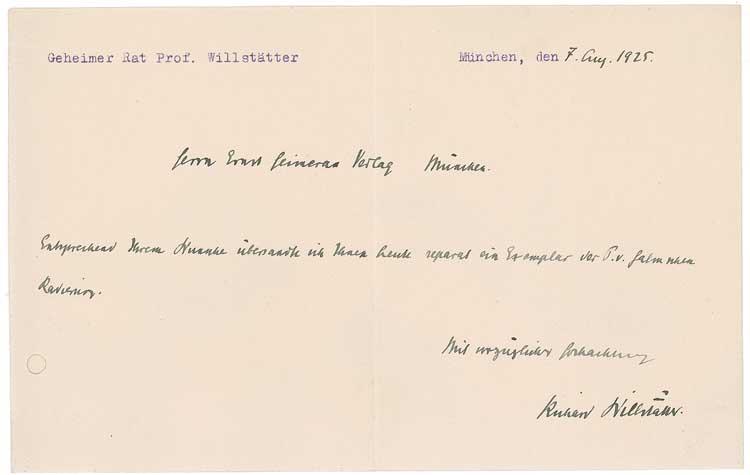 Geheimer Rat Prof. Willstätter München, den 7. Aug. 1925.
Herrn Ernst Heimeran Verlag München.
Entsprechend Ihrem Wunsche übersandte ich Ihnen heute separat ein Exemplar der P. v. Halm'schen
Radierung.
Mit vorzüglicher Hochachtung
Richard Willstätter.